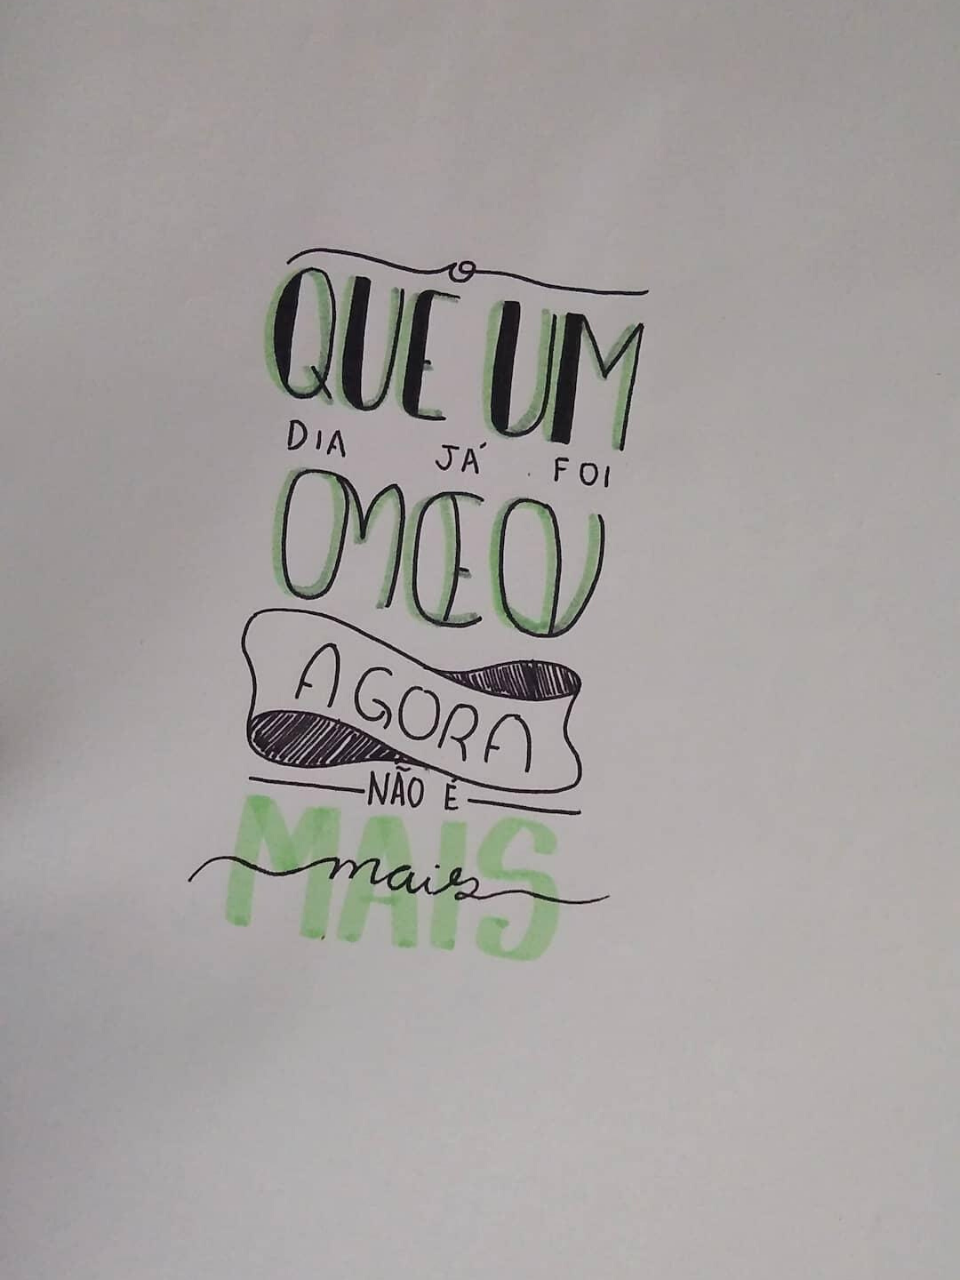 o
QUE UM
DIA JÁ FOI
O MEU
AGORA
NÃO É
MAIS
mais